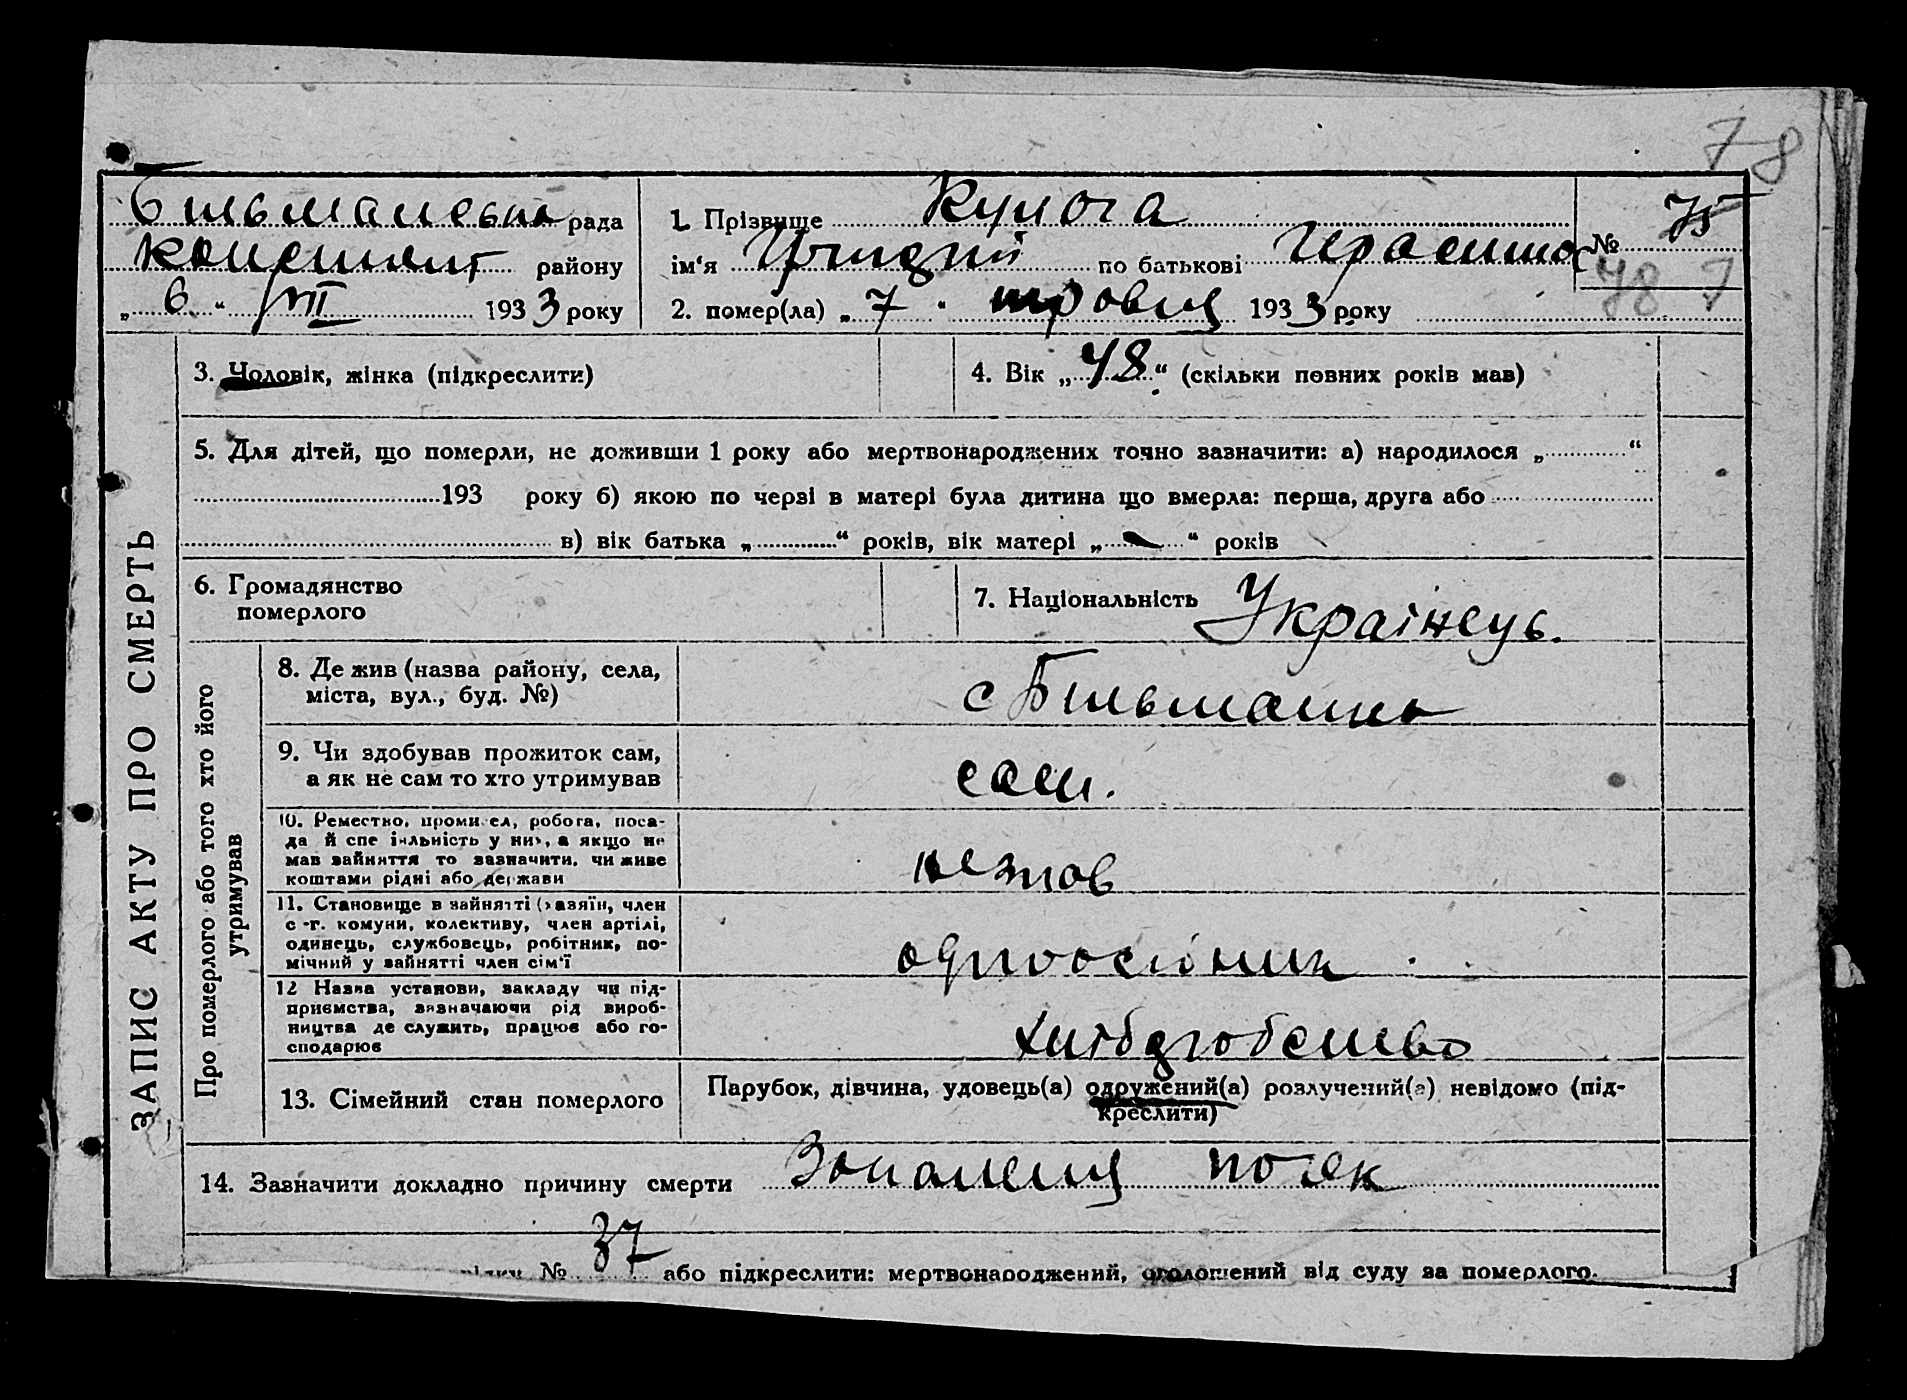 78
Більманська рада
1. Прізвище Кулюга
№ 75
району
ім'я по батькові Герасимов
78
„ 6 “ VII 1933 року
2. помер(ла) „ 7 “ травня 1933 року
3. Чоловік, жінка (підкреслити)
4. Вік „ 48 “ (скільки повних років мав)
5. Для дітей, що померли, не доживши 1 року або мертвонароджених точно зазначити: а) народилося „ “
193 року б) якою по черзі в матері була дитина що вмерла: перша, друга або
в) вік батька „ “ років, вік матері „ “ років
6. Громадянство
померлого
7. Національність Українець.
ЗАПИС АКТУ ПРО СМЕРТЬ
Про померлого або того хто його
утримував
8. Де жив (назва району, села,
міста, вул., буд. №)
с Більманка
9. Чи здобував прожиток сам,
а як не сам то хто утримував
сам.
10. Ремество, промисел, робота, поса-
да й спеціяльність у них, а якщо не
мав зайняття то зазначити, чи живе
коштами рідні або держави
не мав
11. Становище в зайнятті (хазяїн, член
с.-г. комуни, колективу, член артілі,
одинець, службовець, робітник, по-
мічний у зайнятті член сім'ї
одноосібник
12 Назва установи, закладу чи під-
приємства, зазначаючи рід вироб-
ництва де служить, працює або го-
сподарює
хліборобство
13. Сімейний стан померлого
Парубок, дівчина, удовець(а) одружений(а) розлучений(а) невідомо (під-
креслити)
14. Зазначити докладно причину смерти Запалення почек
№ 37 або підкреслити: мертвонароджений, оголошений від суду за померлого.